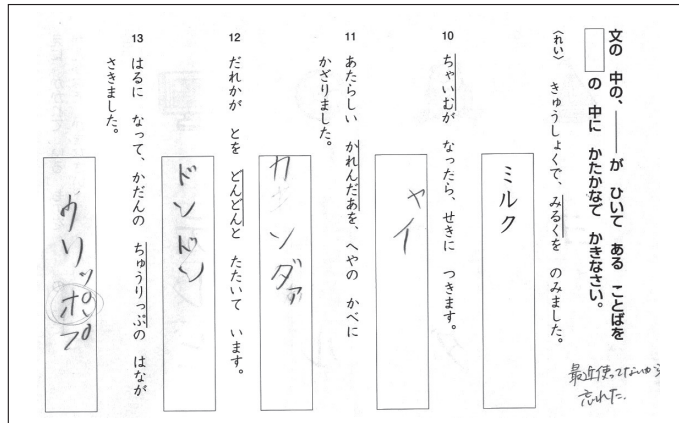 文の 中の、――が ひいて ある ことばを
□の 中に かたかなで かきなさい。
〈れい〉 きゅうしょくで、みるくを のみました。
ミルク
10 ちゃいむが なったら、せきに つきます。
ャイ
11 あたらしい かれんだあを、へやの かべに
かざりました。
カ ンダァ
12 だれかが とを どんどんと たたいて います。
ドンドン
13 はるに なって、かだんの ちゅうりっぷの はなが
さきました。
ウリッポプ
最近使ってないから
忘れた.